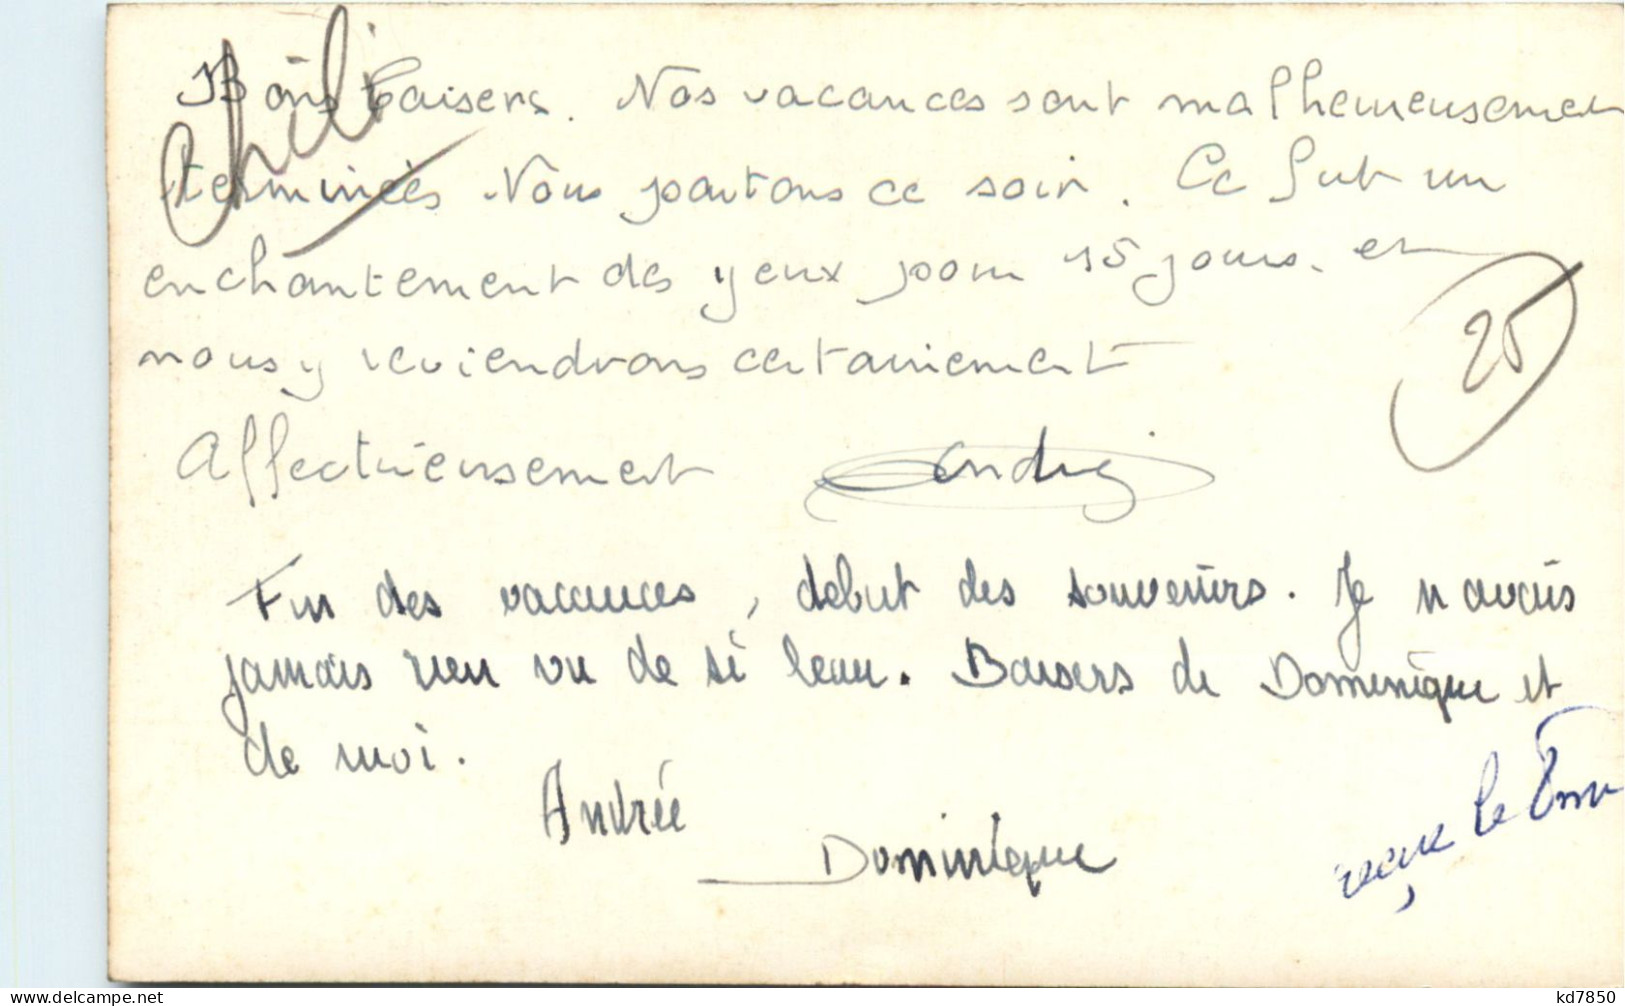 Chili
Bons baisers. Nos vacances sont malheureusement
terminées Nous partons ce soir. Ce fut un
enchantement des yeux pour 15 jours. et
nous y reviendrons certainement
25
Affectueusement
Fin des vacances, début des souvenirs. Je n'avais
jamais rien vu de si beau. Baisers de Dominique et
de moi.
Andrée
Dominique
reçue le
kd7850